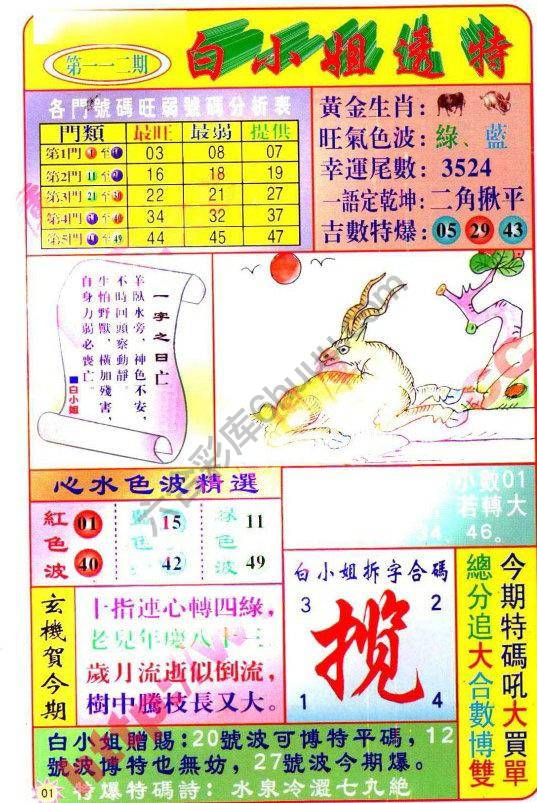 第一一二期
白小姐透特
各門號碼旺弱號碼分析表
門類 最旺 最弱 提供
第1門 1 至 03 08 07
第2門 11 至 16 18 19
第3門 21 至 22 21 27
第4門 至 34 32 37
第5門 至 49 44 45 47
黃金生肖:
旺氣色波:綠、藍
幸運尾數:3524
一語定乾坤:二角揪平
吉數特爆:05 29 43
一字之曰亡
羊臥水旁,神色不安,
不時回頭察動靜。
生怕野獸,橫加殘害,
自身力弱必喪亡。
■白小姐
六合彩库
小數01
若轉大
34、46。
心水色波精選
紅色波 01 40
藍色 15 42
綠色波 11 49
玄機賀今期
十指連心轉四綠,
老兒年慶八十三
歲月流逝似倒流,
樹中騰枝長又大。
白小姐拆字合碼
3 2
揽
1 4
今期特碼吼大買單
總分追大合數博雙
白小姐贈賜:20號波可博特平碼,12
號波博特也無妨,27號波今期爆。
特爆特碼詩:水泉冷澀七九絕
01